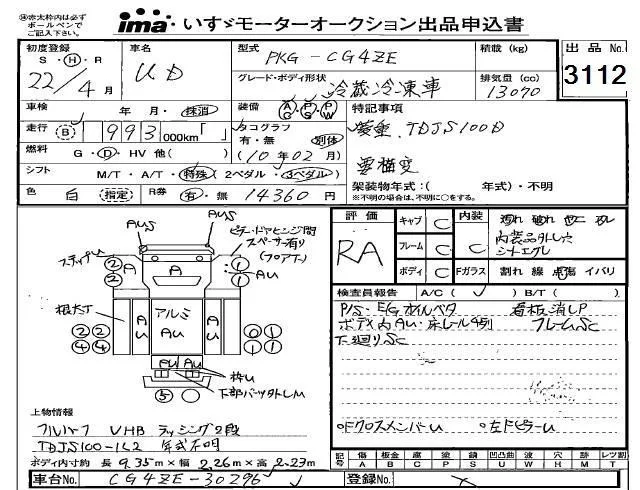 赤太枠内は必ず
ボールペンで
ご記入下さい。
ima いすゞモーターオークション出品申込書
初度登録 S・H・R 22/4月
車名 UD
型式 PKG-CG4ZE
グレード・ボディ形状 冷蔵冷凍車
積載 (kg)
排気量 (cc) 13070
出品No. 3112
車検 年 月・抹消
装備 AC PS PW
特記事項
走行 B 993,000km「 」
タコグラフ 有・無 別体 (10年02月)
TDJS100D
燃料 G・D・HV 他( )
シフト M/T・A/T・特殊(2ペダル・3ペダル)
架装物年式:( 年式)・不明
※不明の場合は、不明に○をする。
色 白 指定 R券 有・無 14360円
AUS
AUS
ピラードアヒンジ間
スペーサー有り
(フロア下)
ステップU
2 2 A 1 1 AU
AU
根太T
アルミ
AU AU AU
2 2 4 4 0 1 1 1
AU AU
枠U
下部パーツ外しM
5
評価 RA
キャブ C
フレーム C
ボディ C
内装 C
Fガラス
汚れ 破れ セニ ヌレ
内装品外し穴
シートエグレ
割れ 線 点傷 イバリ
検査員報告 A/C( ✓ ) B/T( )
P/S・EGオイルベタ 看板消しP
ボディ内AU・床レール4列 フレームSC
下廻りSC
・Fクロスメンバーu ・左ドピラーu
上物情報
VHB ラッシング2段
TDJS100-1L2 年式不明
ボディ内寸約 長 9.35m×幅 2.26m×高 2.23m
記号 傷 A 曲 B 腐 C 塗 P 錆 S 凹凸曲 U 波 W 穴 H 跡 M レツ割 T
車台No. CG4ZE-30296
登録No.